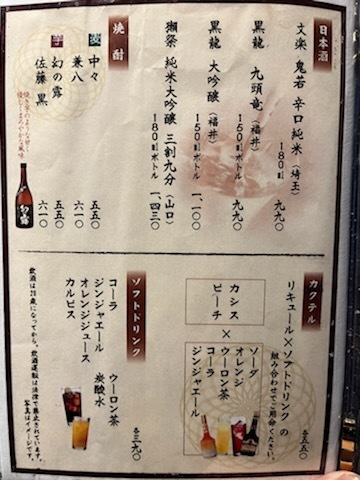 日本酒
文楽 鬼若 辛口純米（埼玉）
180ml 九九〇
黒龍 九頭竜（福井）
150mlボトル 九九〇
黒龍 大吟醸（福井）
150mlボトル 一、一〇〇
獺祭 純米大吟醸 三割九分（山口）
180mlボトル 一、四三〇
焼酎
麦 中々 五五〇
兼八 六一〇
芋 幻の露 五五〇
佐藤 黒 六一〇
焼き芋のような甘く
優しくまろやかな風味
カクテル
リキュール×ソフトドリンクの
組み合わせでご用命ください。
各五五〇
カシス
ピーチ
×
ソーダ
オレンジ
ウーロン茶
コーラ
ジンジャエール
ソフトドリンク
コーラ
ジンジャエール
オレンジジュース
カルピス
ウーロン茶
炭酸水
各三九〇
飲酒は20歳になってから。飲酒運転は法律で禁止されています。
写真はイメージです。